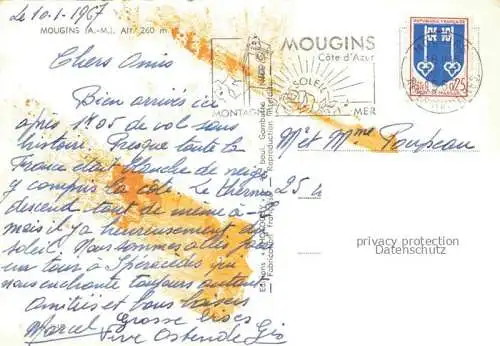 Le 10-1-1967
MOUGINS (A.-M.), Alt. 260 m
Chers Amis
Bien arrivés ici
après 1h05 de vol sans
histoire. Presque toute la
France était blanche de neige
y compris la côte. Le thermo
descend tout de même à
mais il y a heureusement du
soleil. Nous sommes allés faire
un tour à Spéracèdes qui
nous enchante toujours autant
Amitiés et bons baisers
Marcel Grosse bises
Vive Ostende
MOUGINS
Côte d'Azur
SOLEIL
MONTAGNE
MER
REPUBLIQUE FRANÇAISE
0,25
Mr et Mme Poupeau
25
privacy protection
Datenschutz